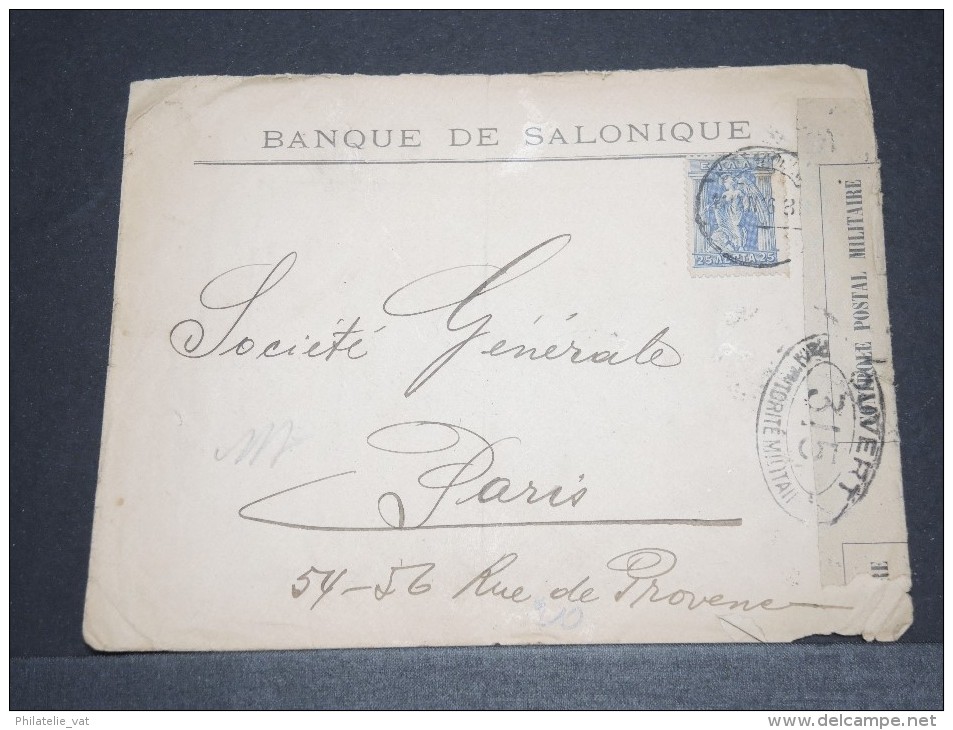 BANQUE DE SALONIQUE
ΕΛΛΑΣ
25 ΛΕΠΤΑ 25
Société Générale
Paris
54-56 Rue de Provence
CONTROLE POSTAL MILITAIRE
OUVERT
315
AUTORITÉ MILITAI
RE
Philatelie_vat
http://www.delcampe.net